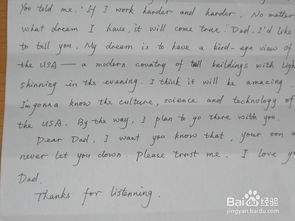 You told me, 'If I work harder and harder. No matter
what dream I have, it will come true. Dad. I'd like
to tell you. My dream is to have a bird-eye view of
the USA — a modern country of tall buildings with light
shinning in the evening. I think it will be amazing.
I'm gonna know the culture, science and technology of
the USA. By the way, I plan to go there with you.
Dear Dad. I want you know that, your son
never let you down. Please trust me. I love you
Dad.
Thanks for listenning.
Baidu 经验
jingyan.baidu.com